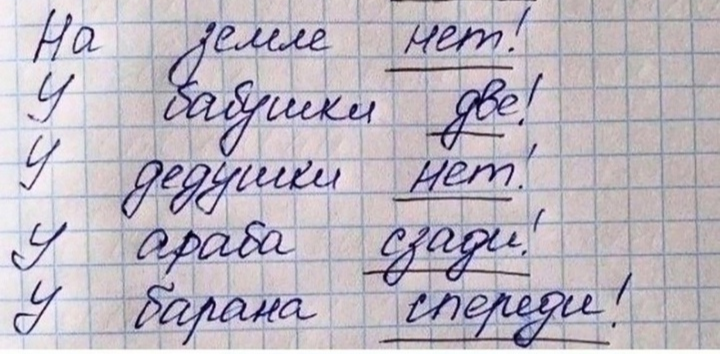 На земле нет!
У бабушки две!
У дедушки нет!
У араба сзади!
У барана спереди!